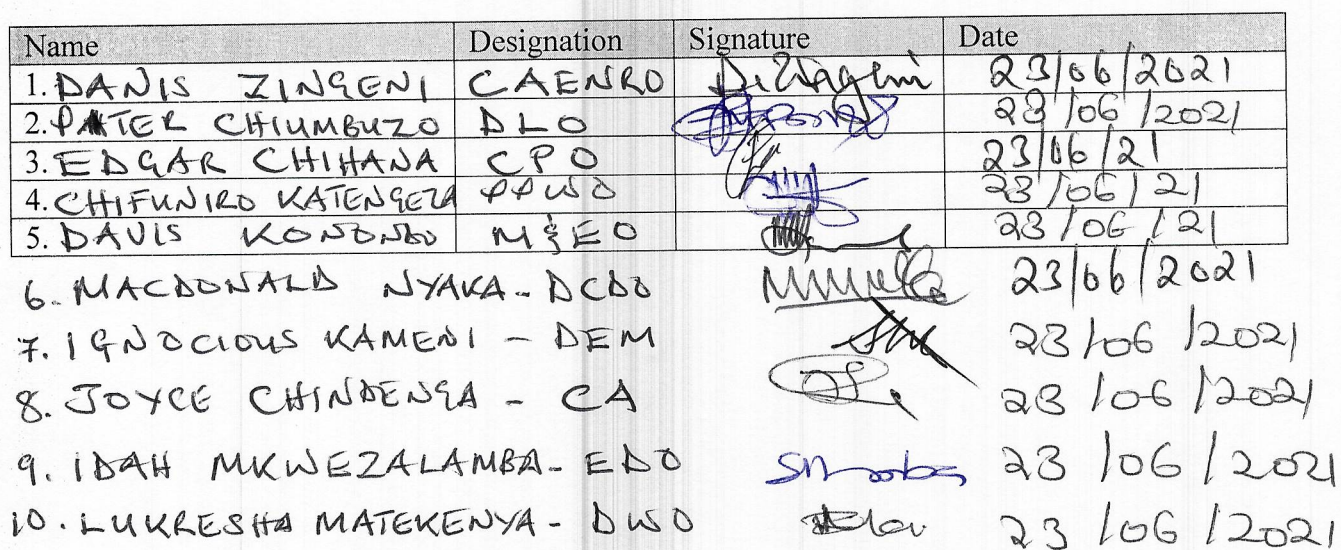 Name Designation Signature Date
1. DANIS ZINGENI CAENRO D. Zingeni 23/06/2021
2. PATER CHIUMBUZO DLO 23/06/2021
3. EDGAR CHIHANA CPO 23/06/21
4. CHIFUNIRO KATENGEZA PPWO 23/06/21
5. DAVIS KONONDO M&EO 23/06/21
6. MACDONALD NYAKA - DCDO 23/06/2021
7. IGNOCIOUS KAMENI - DEM 23/06/2021
8. JOYCE CHINDENGA - CA 23/06/2021
9. IDAH MKWEZALAMBA - EDO 23/06/2021
10. LUKRESHA MATEKENYA - DWO 23/06/2021